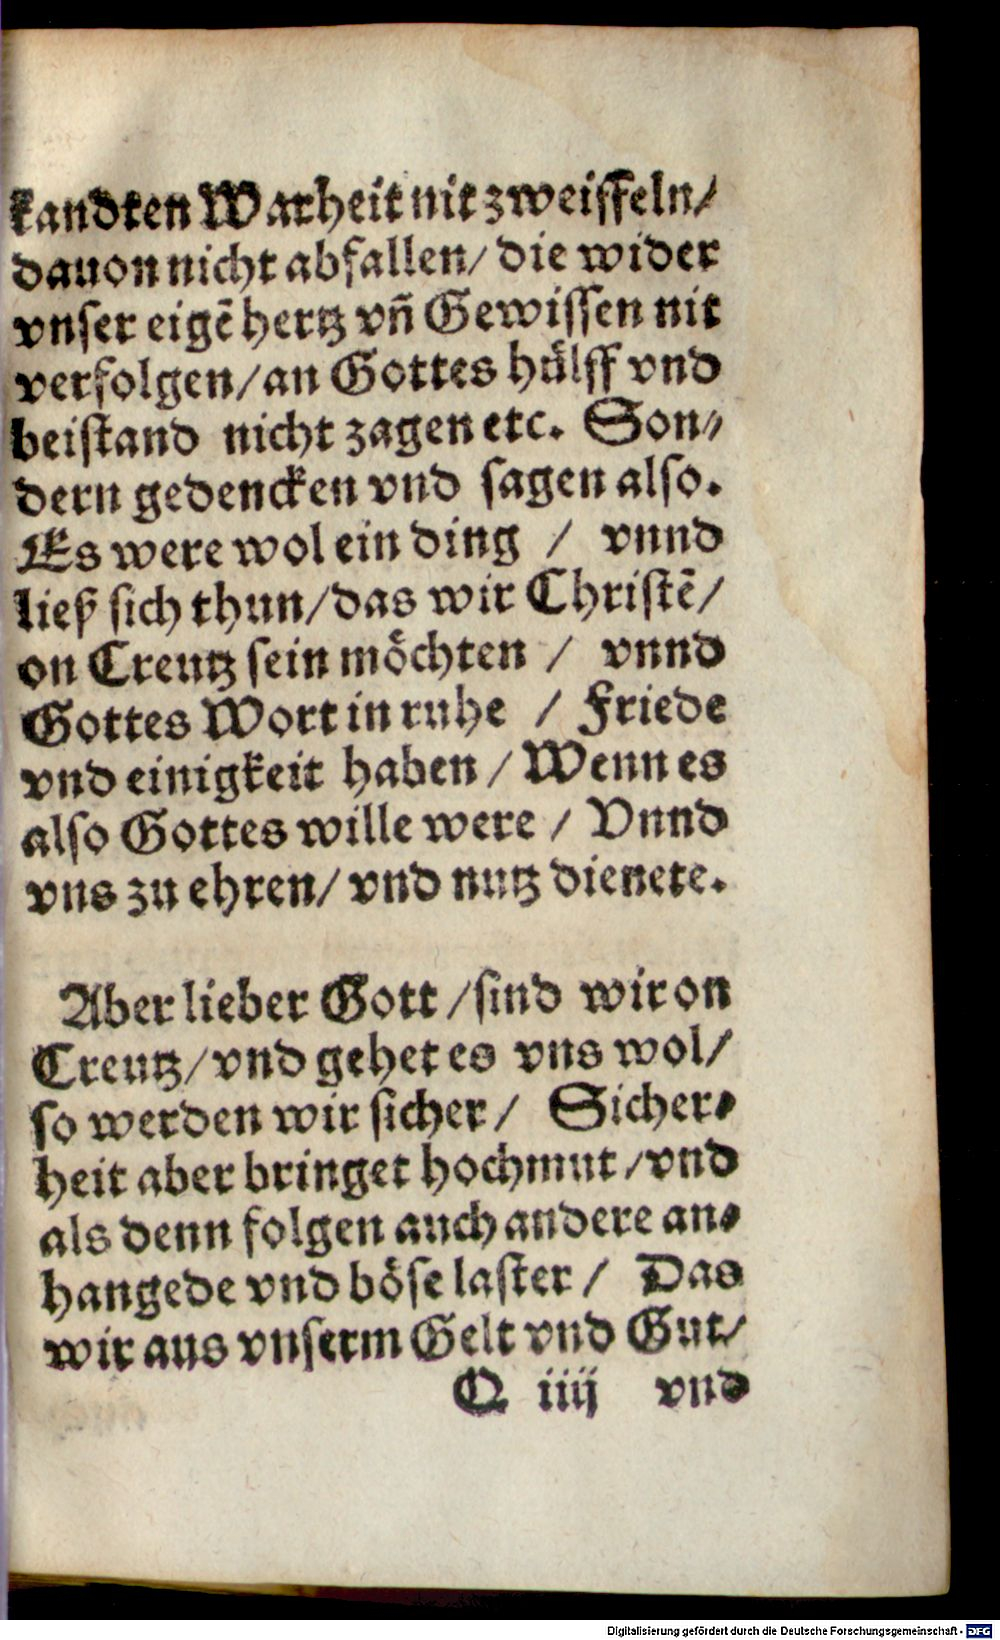 kandten Warheit nit zweiffeln/
dauon nicht abfallen/ die wider
vnser eigẽ hertz vñ Gewissen nit
verfolgen/ an Gottes hülff vnd
beistand nicht zagen etc. Son⸗
dern gedencken vnd sagen also.
Es were wol ein ding / vnnd
ließ sich thun/ das wir Christẽ/
on Creutz sein möchten / vnnd
Gottes Wort in ruhe / Friede
vnd einigkeit haben / Wenn es
also Gottes wille were / Vnnd
vns zu ehren/ vnd nutz dienete.
Aber lieber Gott / sind wir on
Creutz/ vnd gehet es vns wol/
so werden wir sicher / Sicher⸗
heit aber bringet hochmut / vnd
als denn folgen auch andere an⸗
hangede vnd böse laster / Das
wir aus vnserm Gelt vnd Gut/
Q iiij vnd
Digitalisierung gefördert durch die Deutsche Forschungsgemeinschaft - DFG